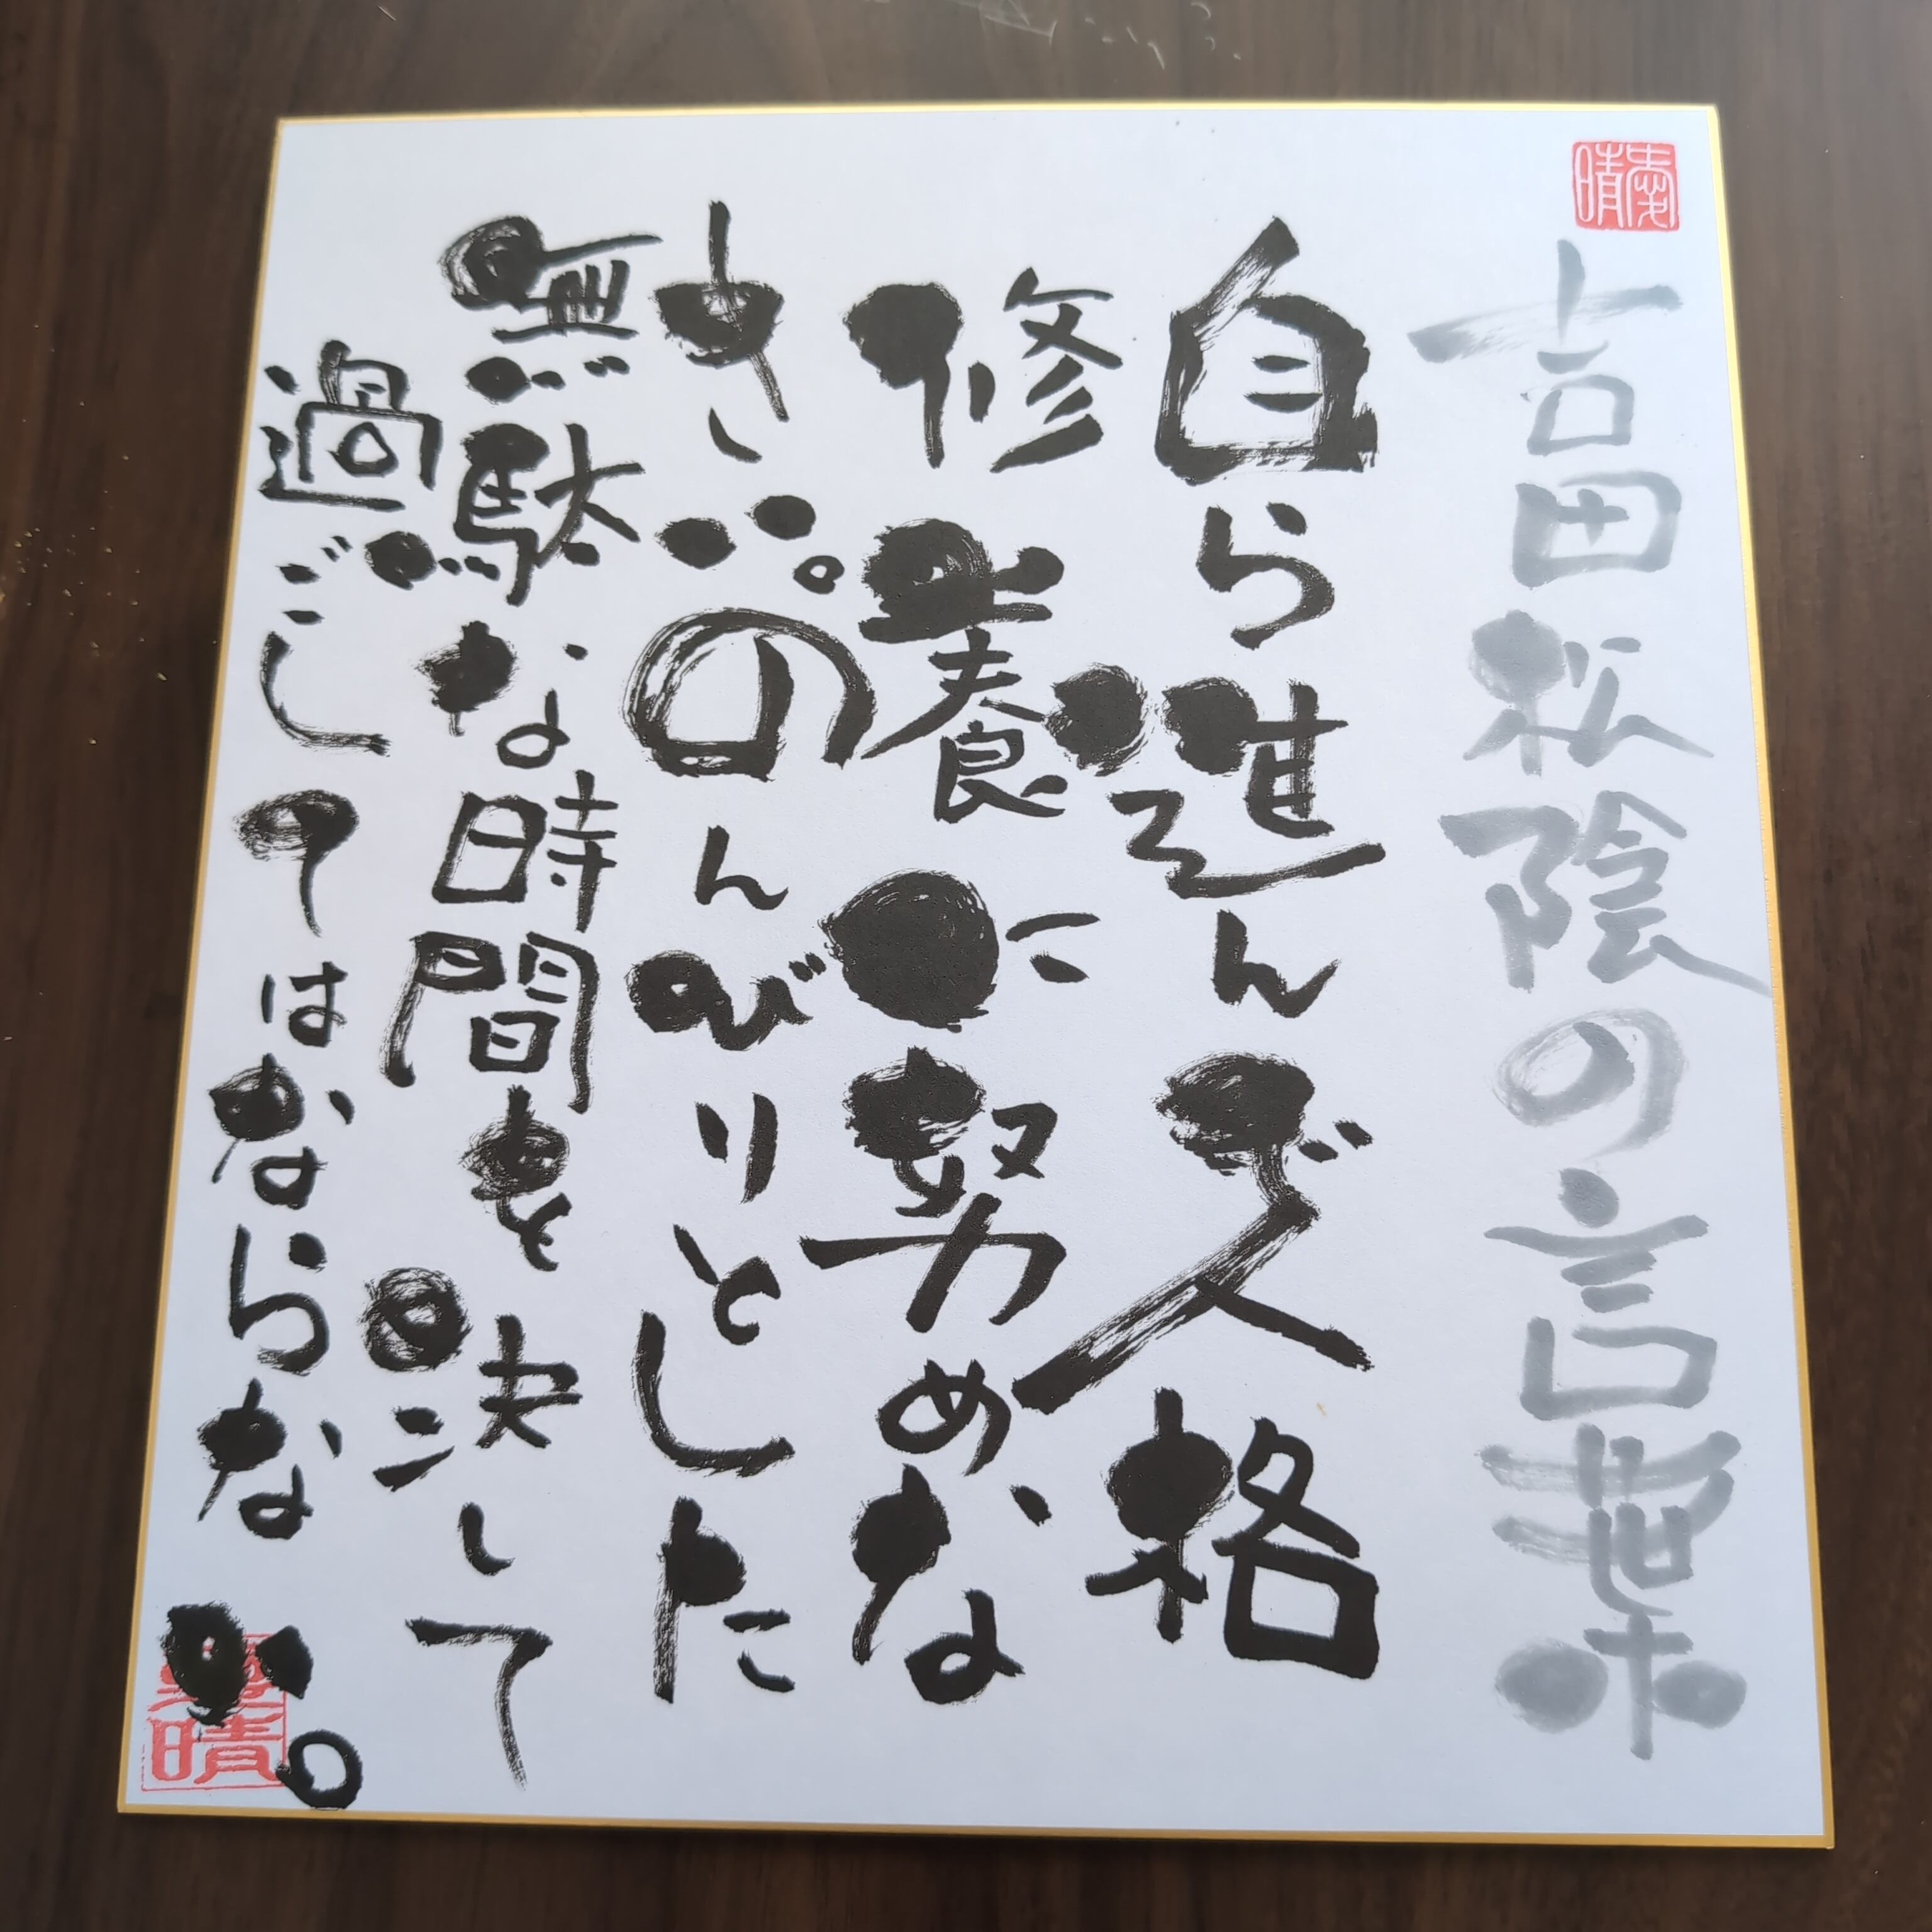 吉田松陰の言葉
自ら進んで人格
修養に努めな
さい。のんびりとした
無駄な時間を決して
過ごしてはならない。